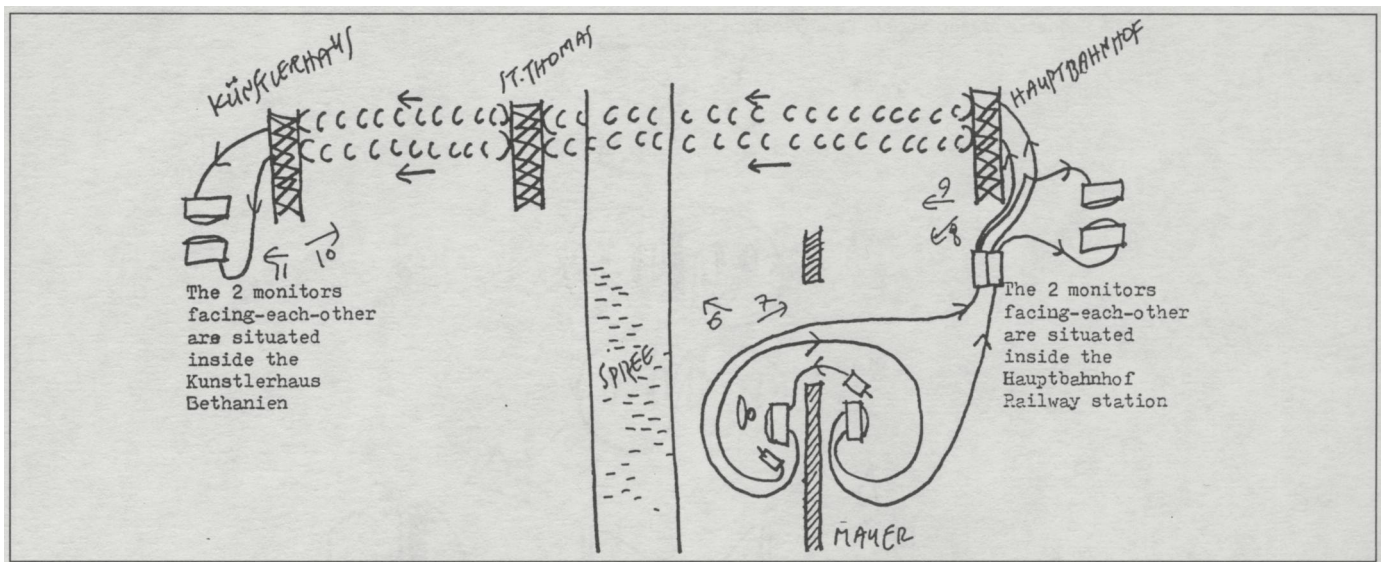 KÜNSTLERHAUS
ST. THOMAS
HAUPTBAHNHOF
9
8
11
10
The 2 monitors
facing-each-other
are situated
inside the
Kunstlerhaus
Bethanien
6
7
The 2 monitors
facing-each-other
are situated
inside the
Hauptbahnhof
Railway station
SPREE
MAUER